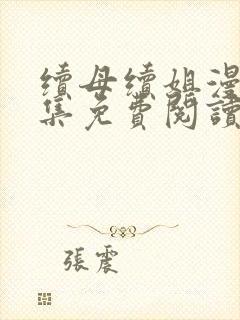 續母續姐漫
集免費閱讀
張震